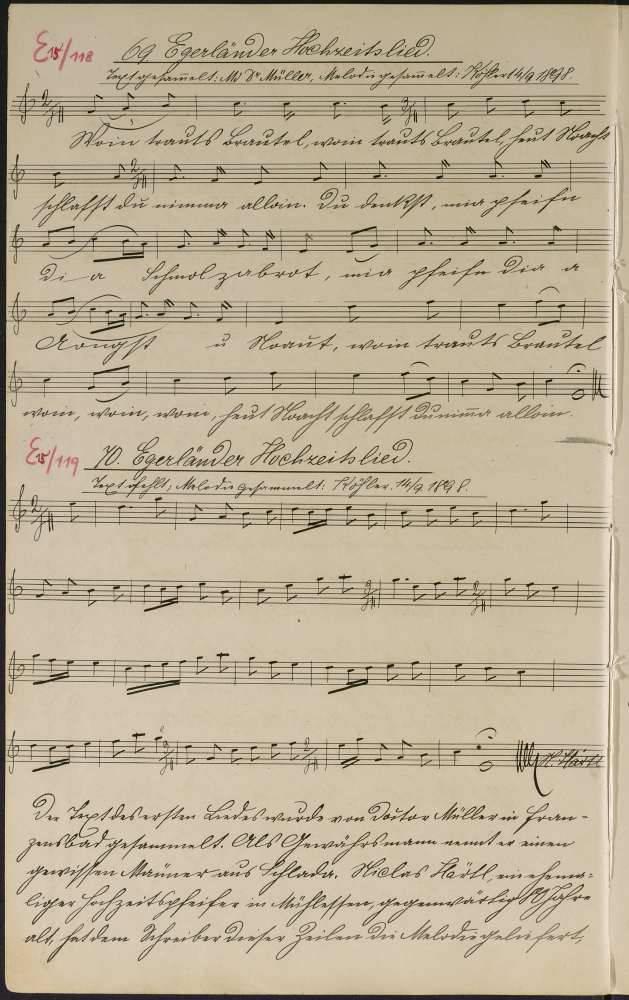 E15/118 69. Egerländer Hochzeitslied.
Text gesam̅elt: M Dr Müller, Melodie gesam̅elt: Köhler 14/9 1898.
Woin trauts Brautel, woin trauts Brautel, heut Noacht
schlafst du nimma alloin. Du denkst, mia pfeifn
di a Schmolzabrot, mia pfeifn dia a
Aongst u Noaut, woin trauts Brautel
woin, woin, woin, heut Noacht schlafst du nim̅a alloin.
E15/119 70. Egerländer Hochzeitslied.
Text fehlt; Melodie gesammelt. Köhler. 14/9 1898.
N. Härtl
Der Text des ersten Liedes wurde von Doctor Müller in Fran-
zensbad gesammelt. Als Gewährsmann nennt er einen
gewissen Manner aus Schlada. Niclas Härtl, ein ehema-
liger Hochzeitspfeifer in Mühlessen, gegenwärtig Jahre
alt, hat dem Schreiber dieser Zeilen die Melodie geliefert,